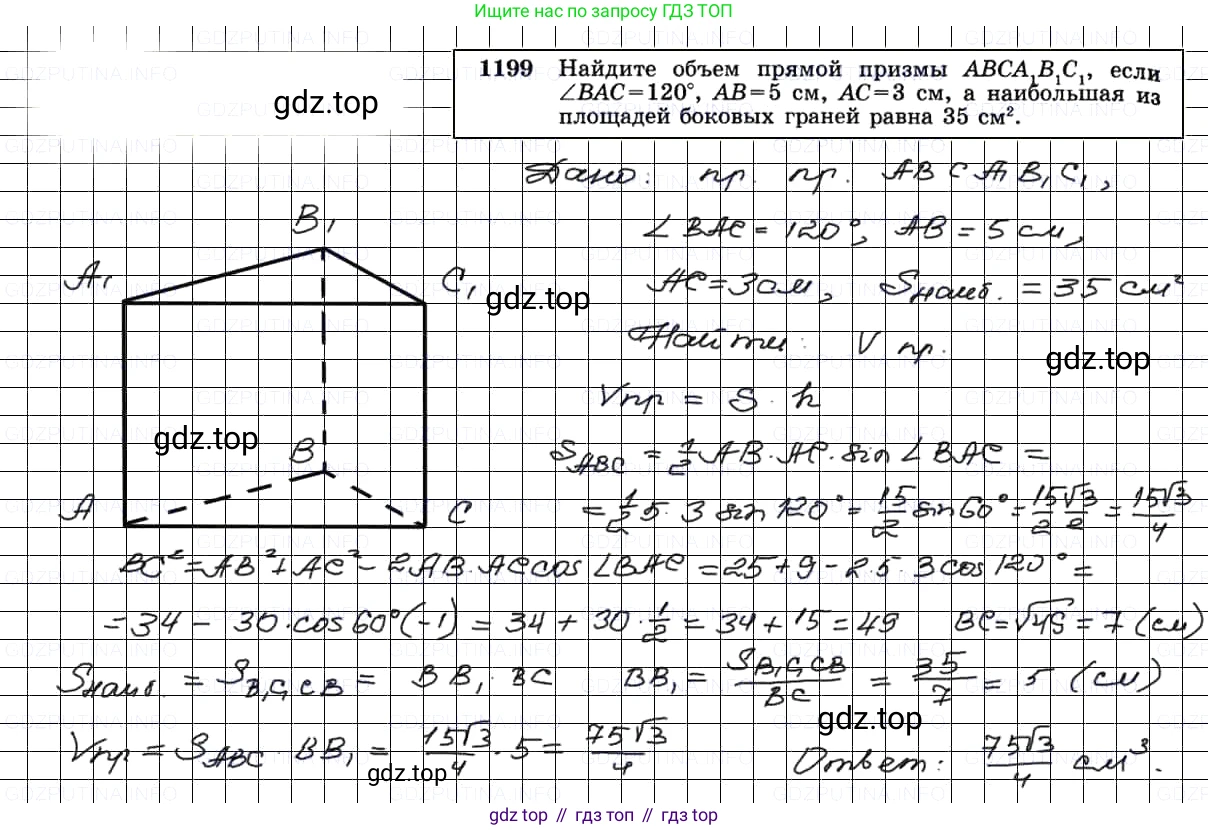 Ищите нас по запросу ГДЗ ТОП
1199 Найдите объем прямой призмы ABCA₁B₁C₁, если
∠BAC=120°, AB=5 см, AC=3 см, а наибольшая из
площадей боковых граней равна 35 см².
gdz.top
Дано: пр. пр. ABCA₁B₁C₁,
∠BAC = 120°, AB = 5 см,
AC = 3 см, Sнаиб. = 35 см²
gdz.top
Найти: V пр.
gdz.top
B₁
A₁
C₁
Vпр = S · h
gdz.top
B
A
C
S_ABC = 1/2 AB·AC·sin∠BAC =
= 1/2 5·3 sin 120° = 15/2 sin 60° = 15/2 √3/2 = 15√3/4
BC² = AB² + AC² - 2AB·AC cos∠BAC = 25 + 9 - 2·5·3 cos 120° =
= 34 - 30·cos 60°(-1) = 34 + 30·1/2 = 34 + 15 = 49 BC = √49 = 7 (см)
Sнаиб. = S_B₁C₁CB = BB₁·BC BB₁ = S_B₁C₁CB/BC = 35/7 = 5 (см)
gdz.top
Vпр = S_ABC·BB₁ = 15√3/4 · 5 = 75√3/4 Ответ: 75√3/4 см³.
gdz.top
gdz top // гдз топ // гдз top
GDZPUTINA.INFO